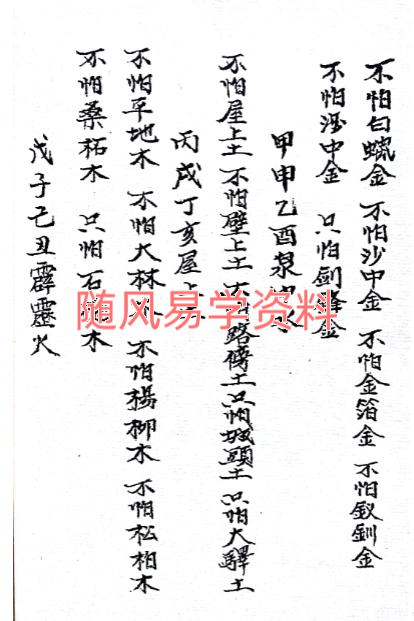 不怕白蠟金 不怕沙中金 不怕金箔金 不怕釵釧金
不怕海中金 只怕劍鋒金
甲申乙酉泉中水
不怕屋上土 不怕壁上土 不怕路傍土 只怕城頭土 只怕大驛土
丙戌丁亥屋上土
不怕平地木 不怕大林木 不怕楊柳木 不怕松柏木
不怕桑柘木 只怕石榴木
戊子己丑霹靂火
随风易学资料